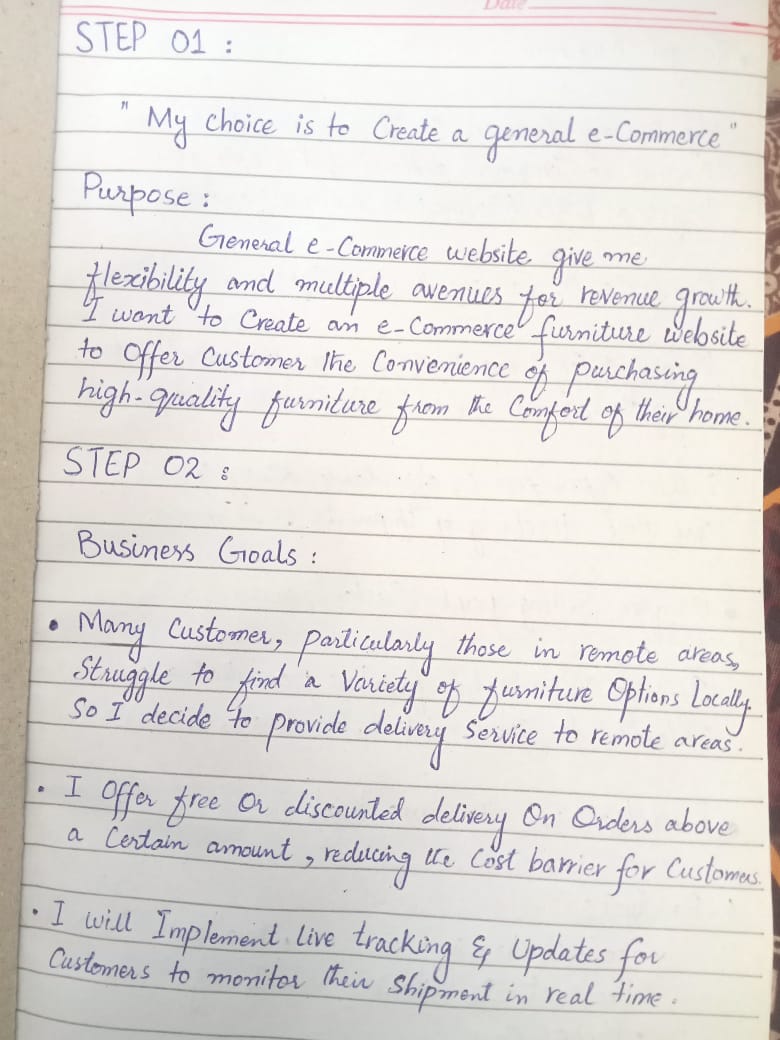 Date
STEP 01 :
" My choice is to Create a general e-Commerce "
Purpose :
General e-Commerce website give me
flexibility and multiple avenues for revenue growth.
I want to Create an e-Commerce furniture website
to Offer Customer the Convenience of purchasing
high-quality furniture from the Comfort of their home.
STEP 02 :
Business Goals :
• Many Customer, particularly those in remote areas,
Struggle to find a Variety of furniture Options Locally.
So I decide to provide delivery Service to remote areas.
• I Offer free Or discounted delivery On Orders above
a Certain amount, reducing the Cost barrier for Customers.
• I will Implement live tracking & Updates for
Customers to monitor their Shipment in real time.